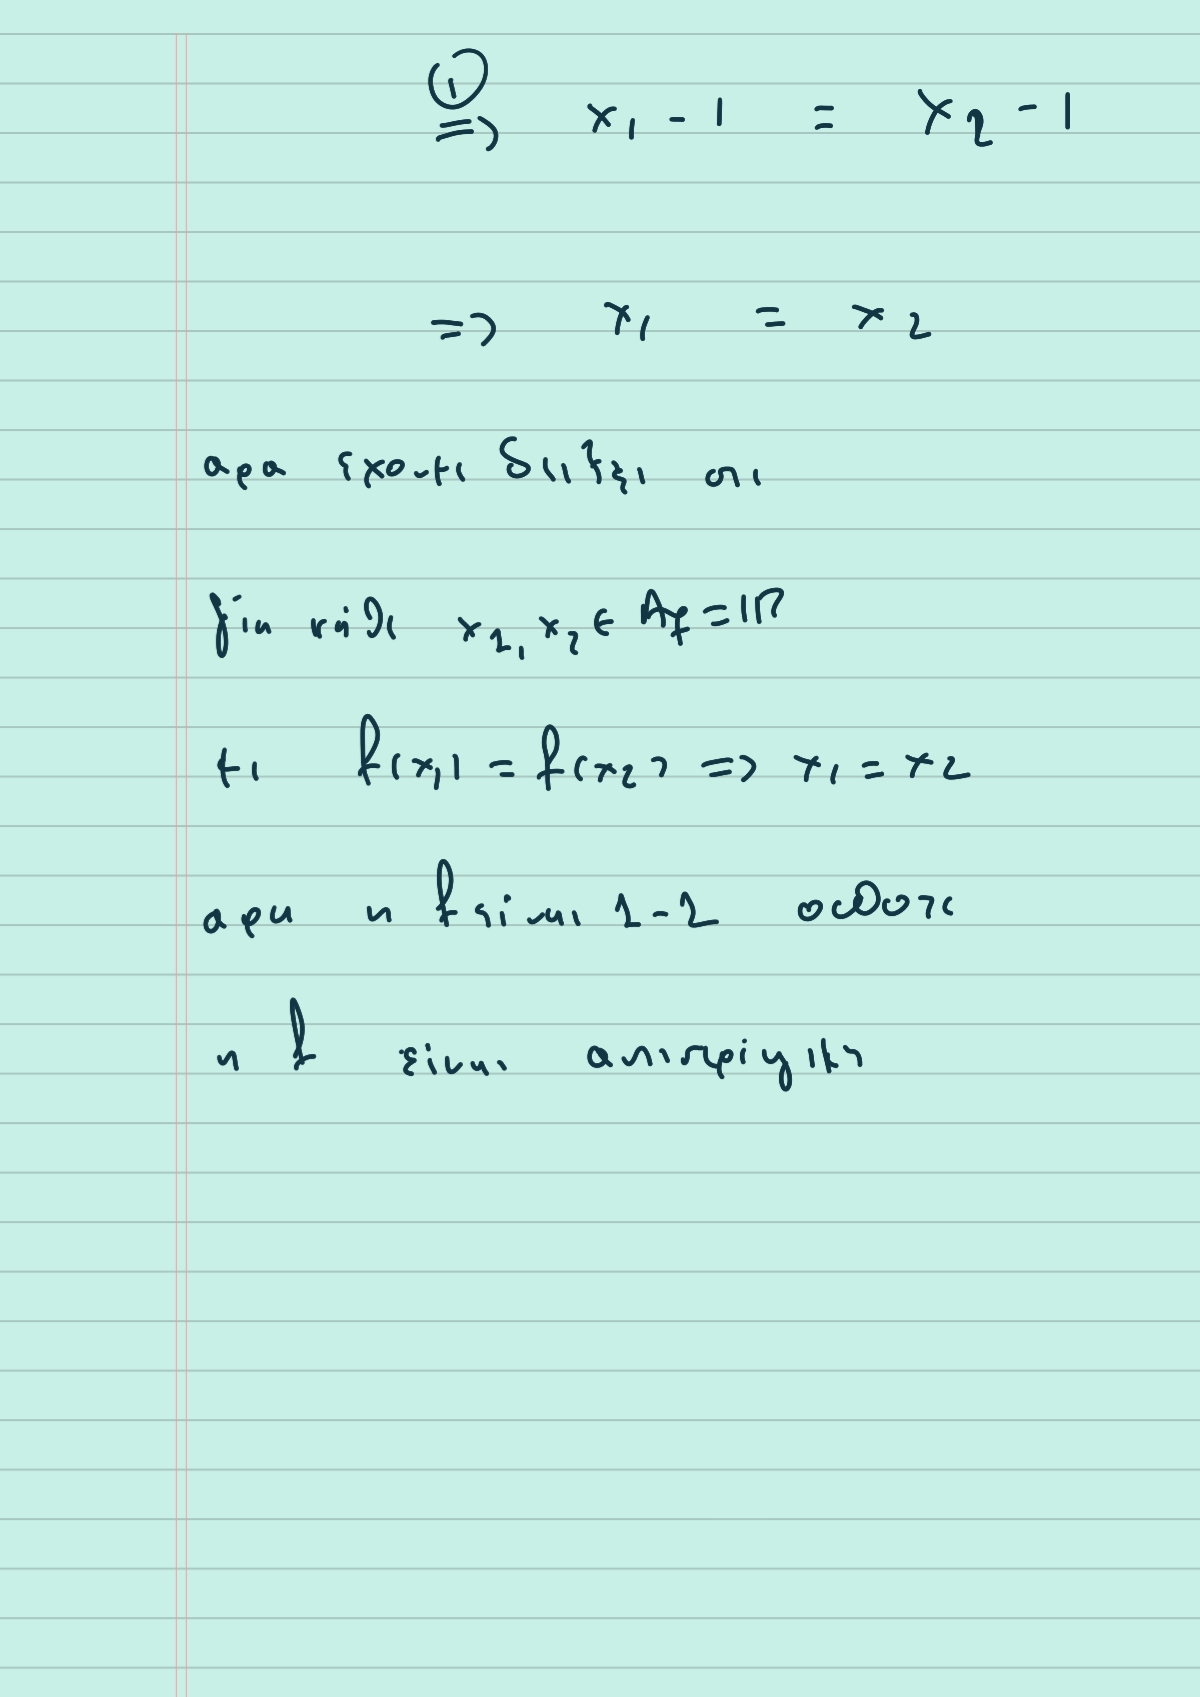 ①
⇒ x₁ - 1 = x₂ - 1
⇒ x₁ = x₂
αρα εχουμε δείξει οτι
για κάθε x₁, x₂ ∈ A_f = ℝ
με f(x₁) = f(x₂) ⇒ x₁ = x₂
αρα η f είναι 1-1 οπότε
η f είναι αντιστρέψιμη